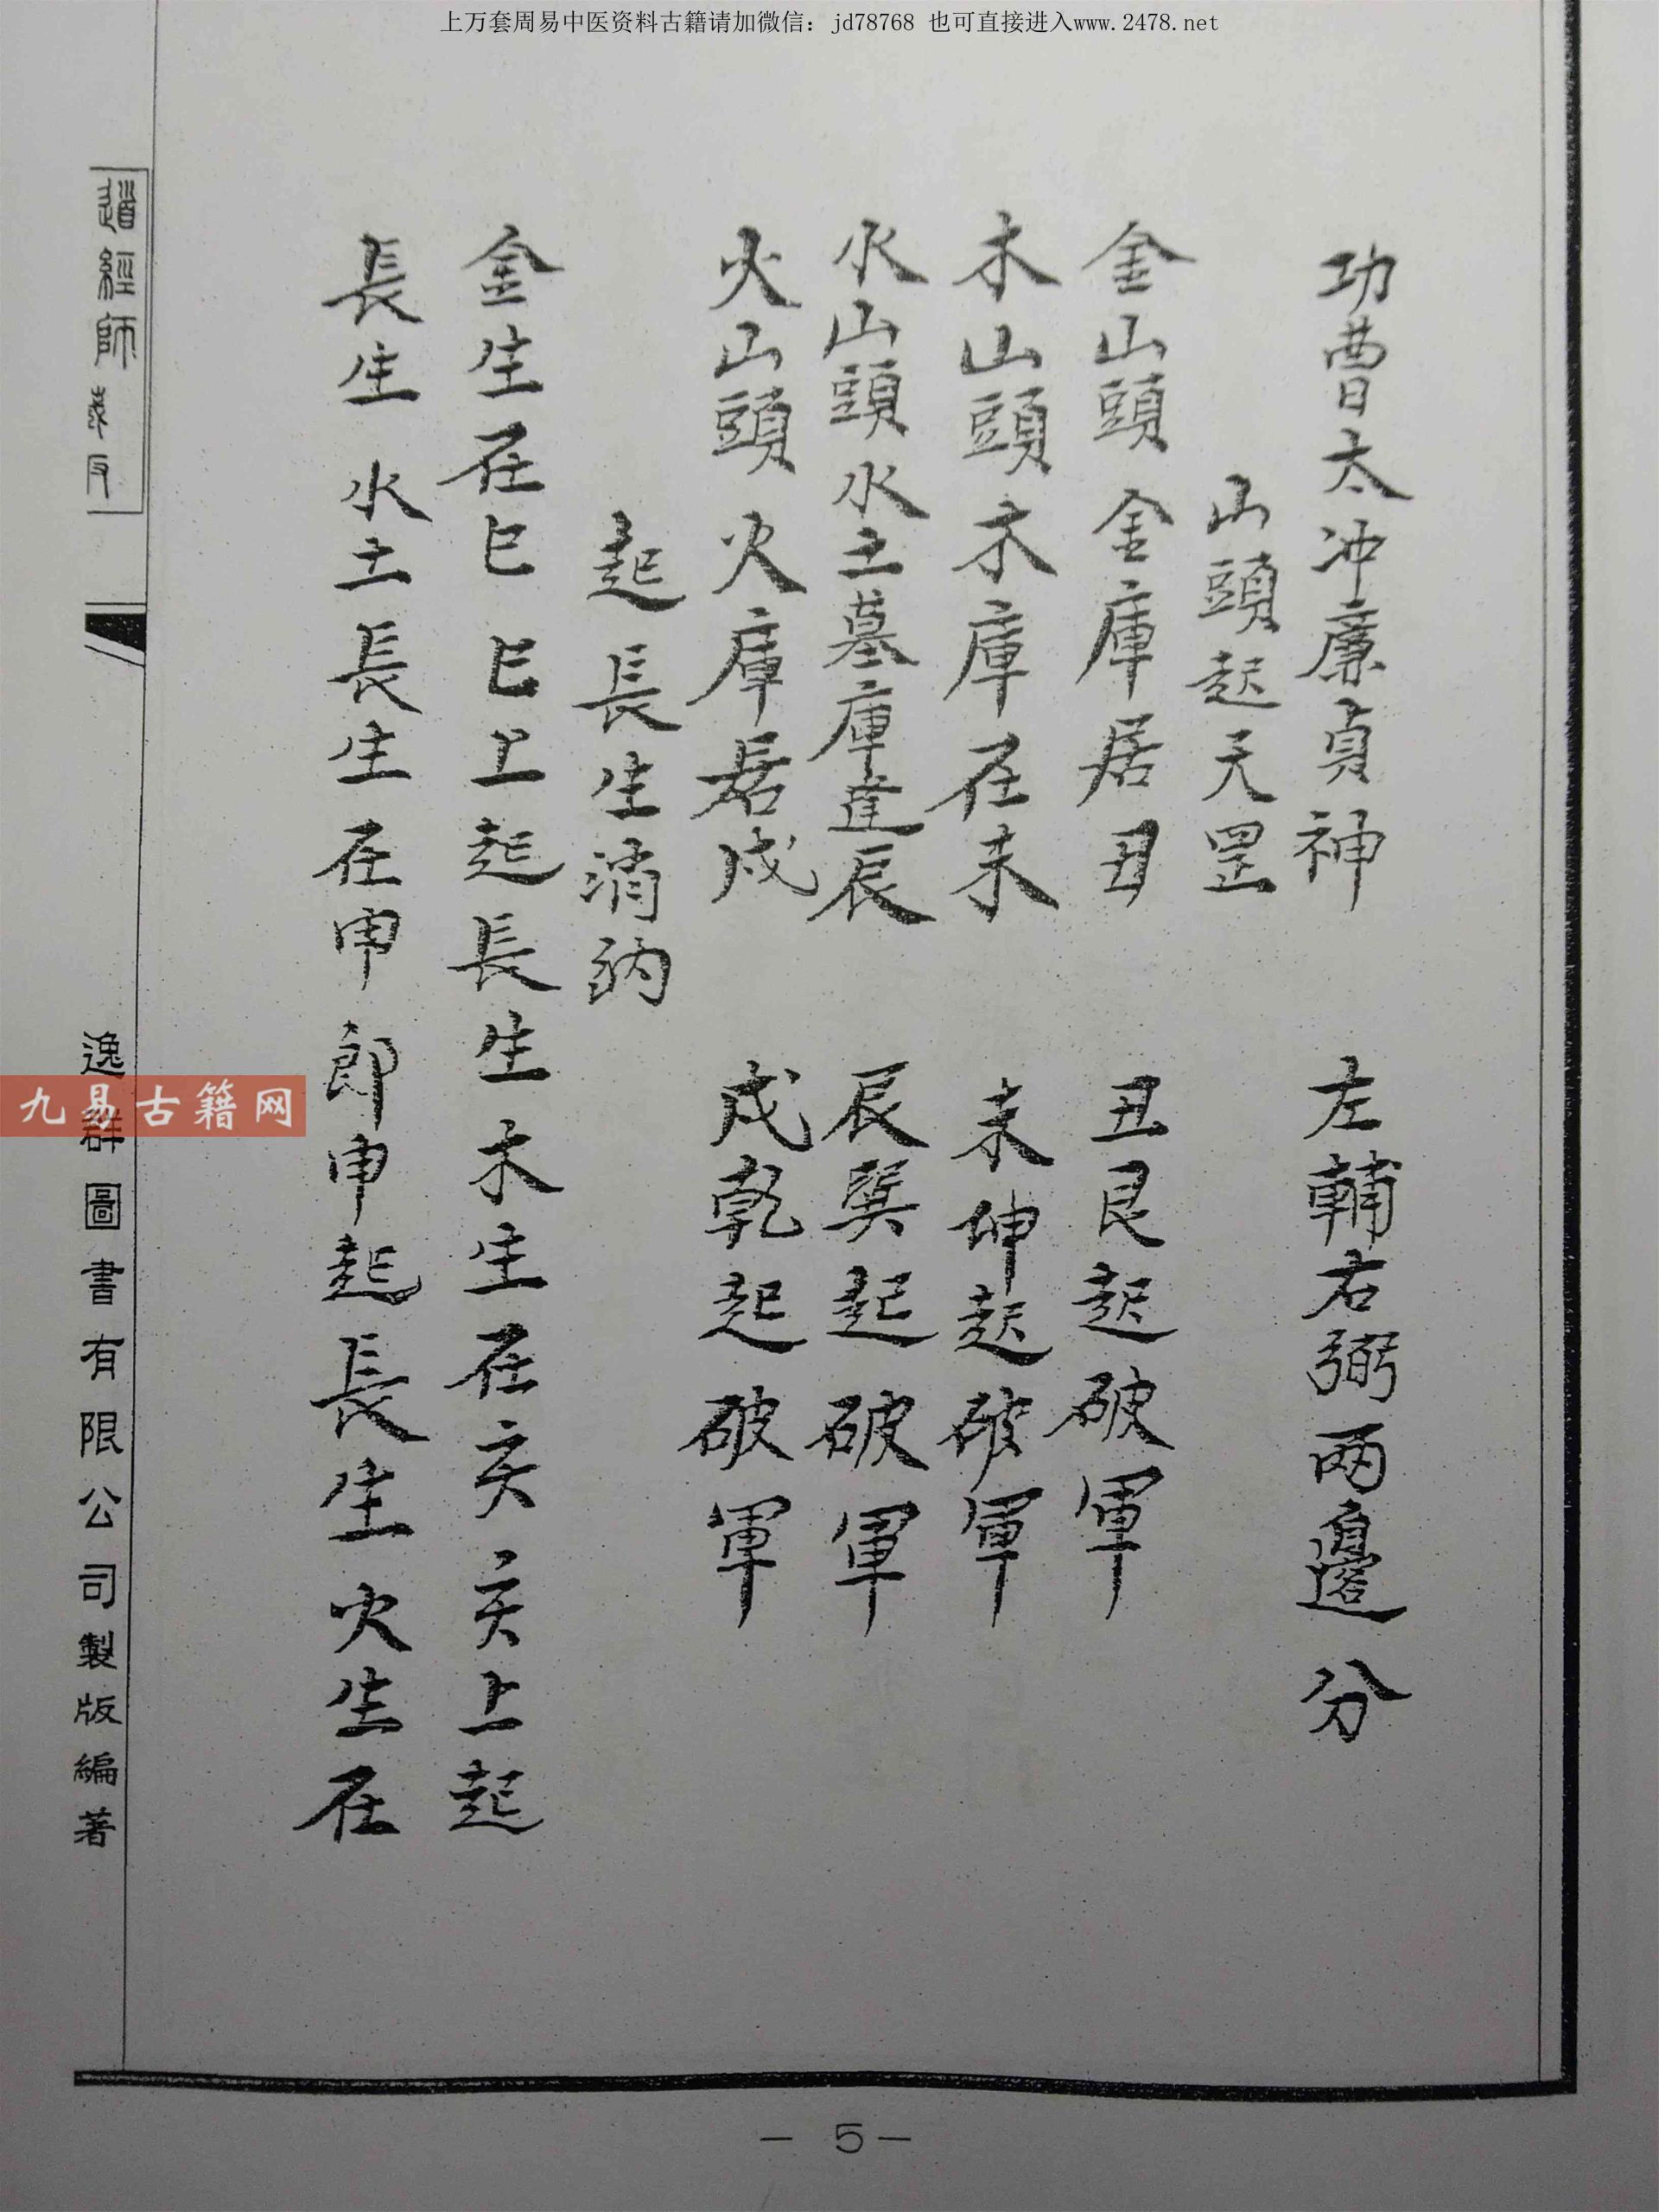 上万套周易中医资料古籍请加微信：jd78768 也可直接进入www.2478.net
功曹太冲廉貞神 左輔右弼兩邊分
山頭起天罡
金山頭金庫居丑 丑艮起破軍
木山頭木庫在未 未坤起破軍
水山頭水土墓庫逢辰 辰巽起破軍
火山頭火庫居戌 戌乾起破軍
起長生消納
金生在巳 巳上起長生 木生在亥 亥上起
長生 水土長生在申 郎申起長生 火生在
道經師
逸群圖書有限公司製版編著
九易古籍网
— 5 —